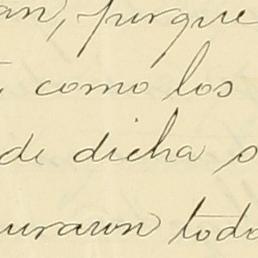 an, porque
como los
de dicha s
uraron todo